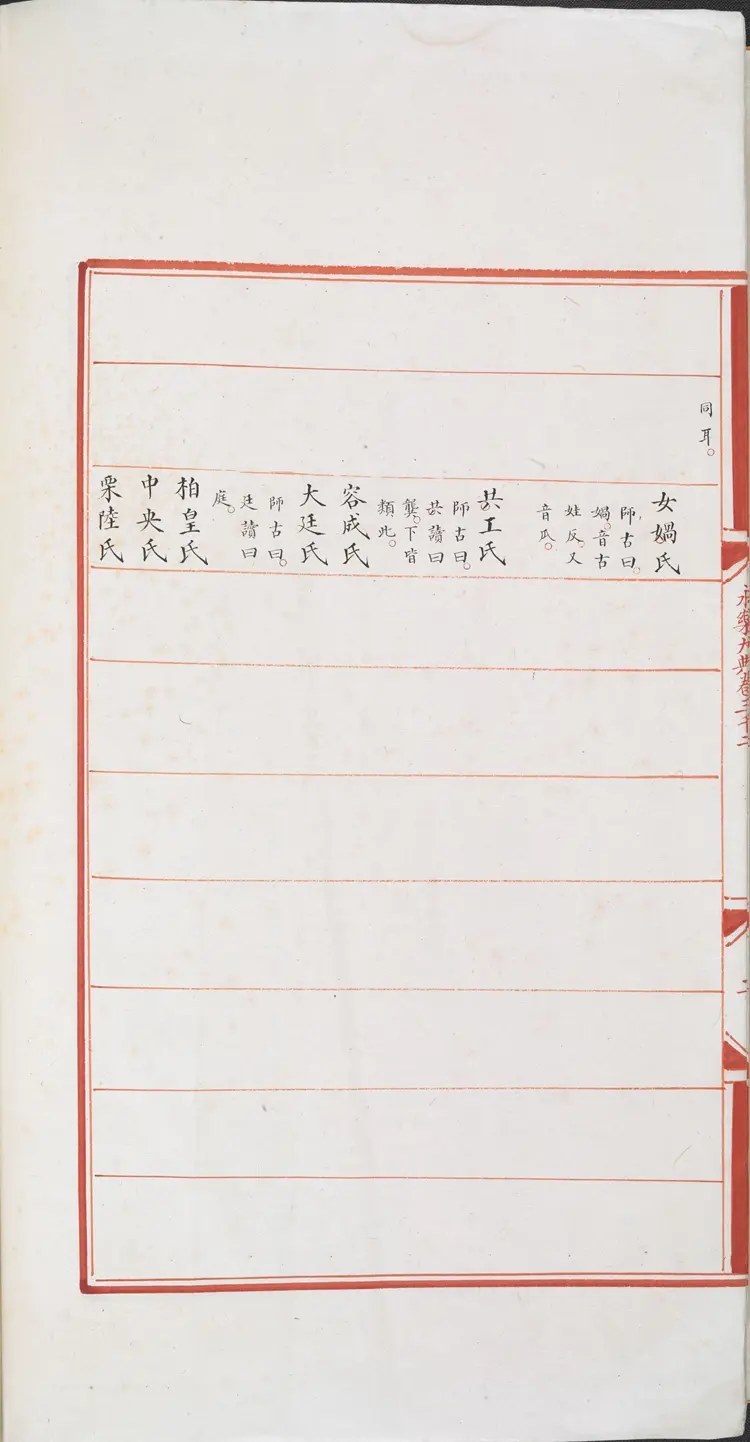 同耳。
女媧氏
師古曰。
媧。音古
娃反。又
音瓜。
共工氏
師古曰。
共讀曰
龔。下皆
類此。
容成氏
大廷氏
師古曰。
廷讀曰
庭。
柏皇氏
中央氏
栗陸氏